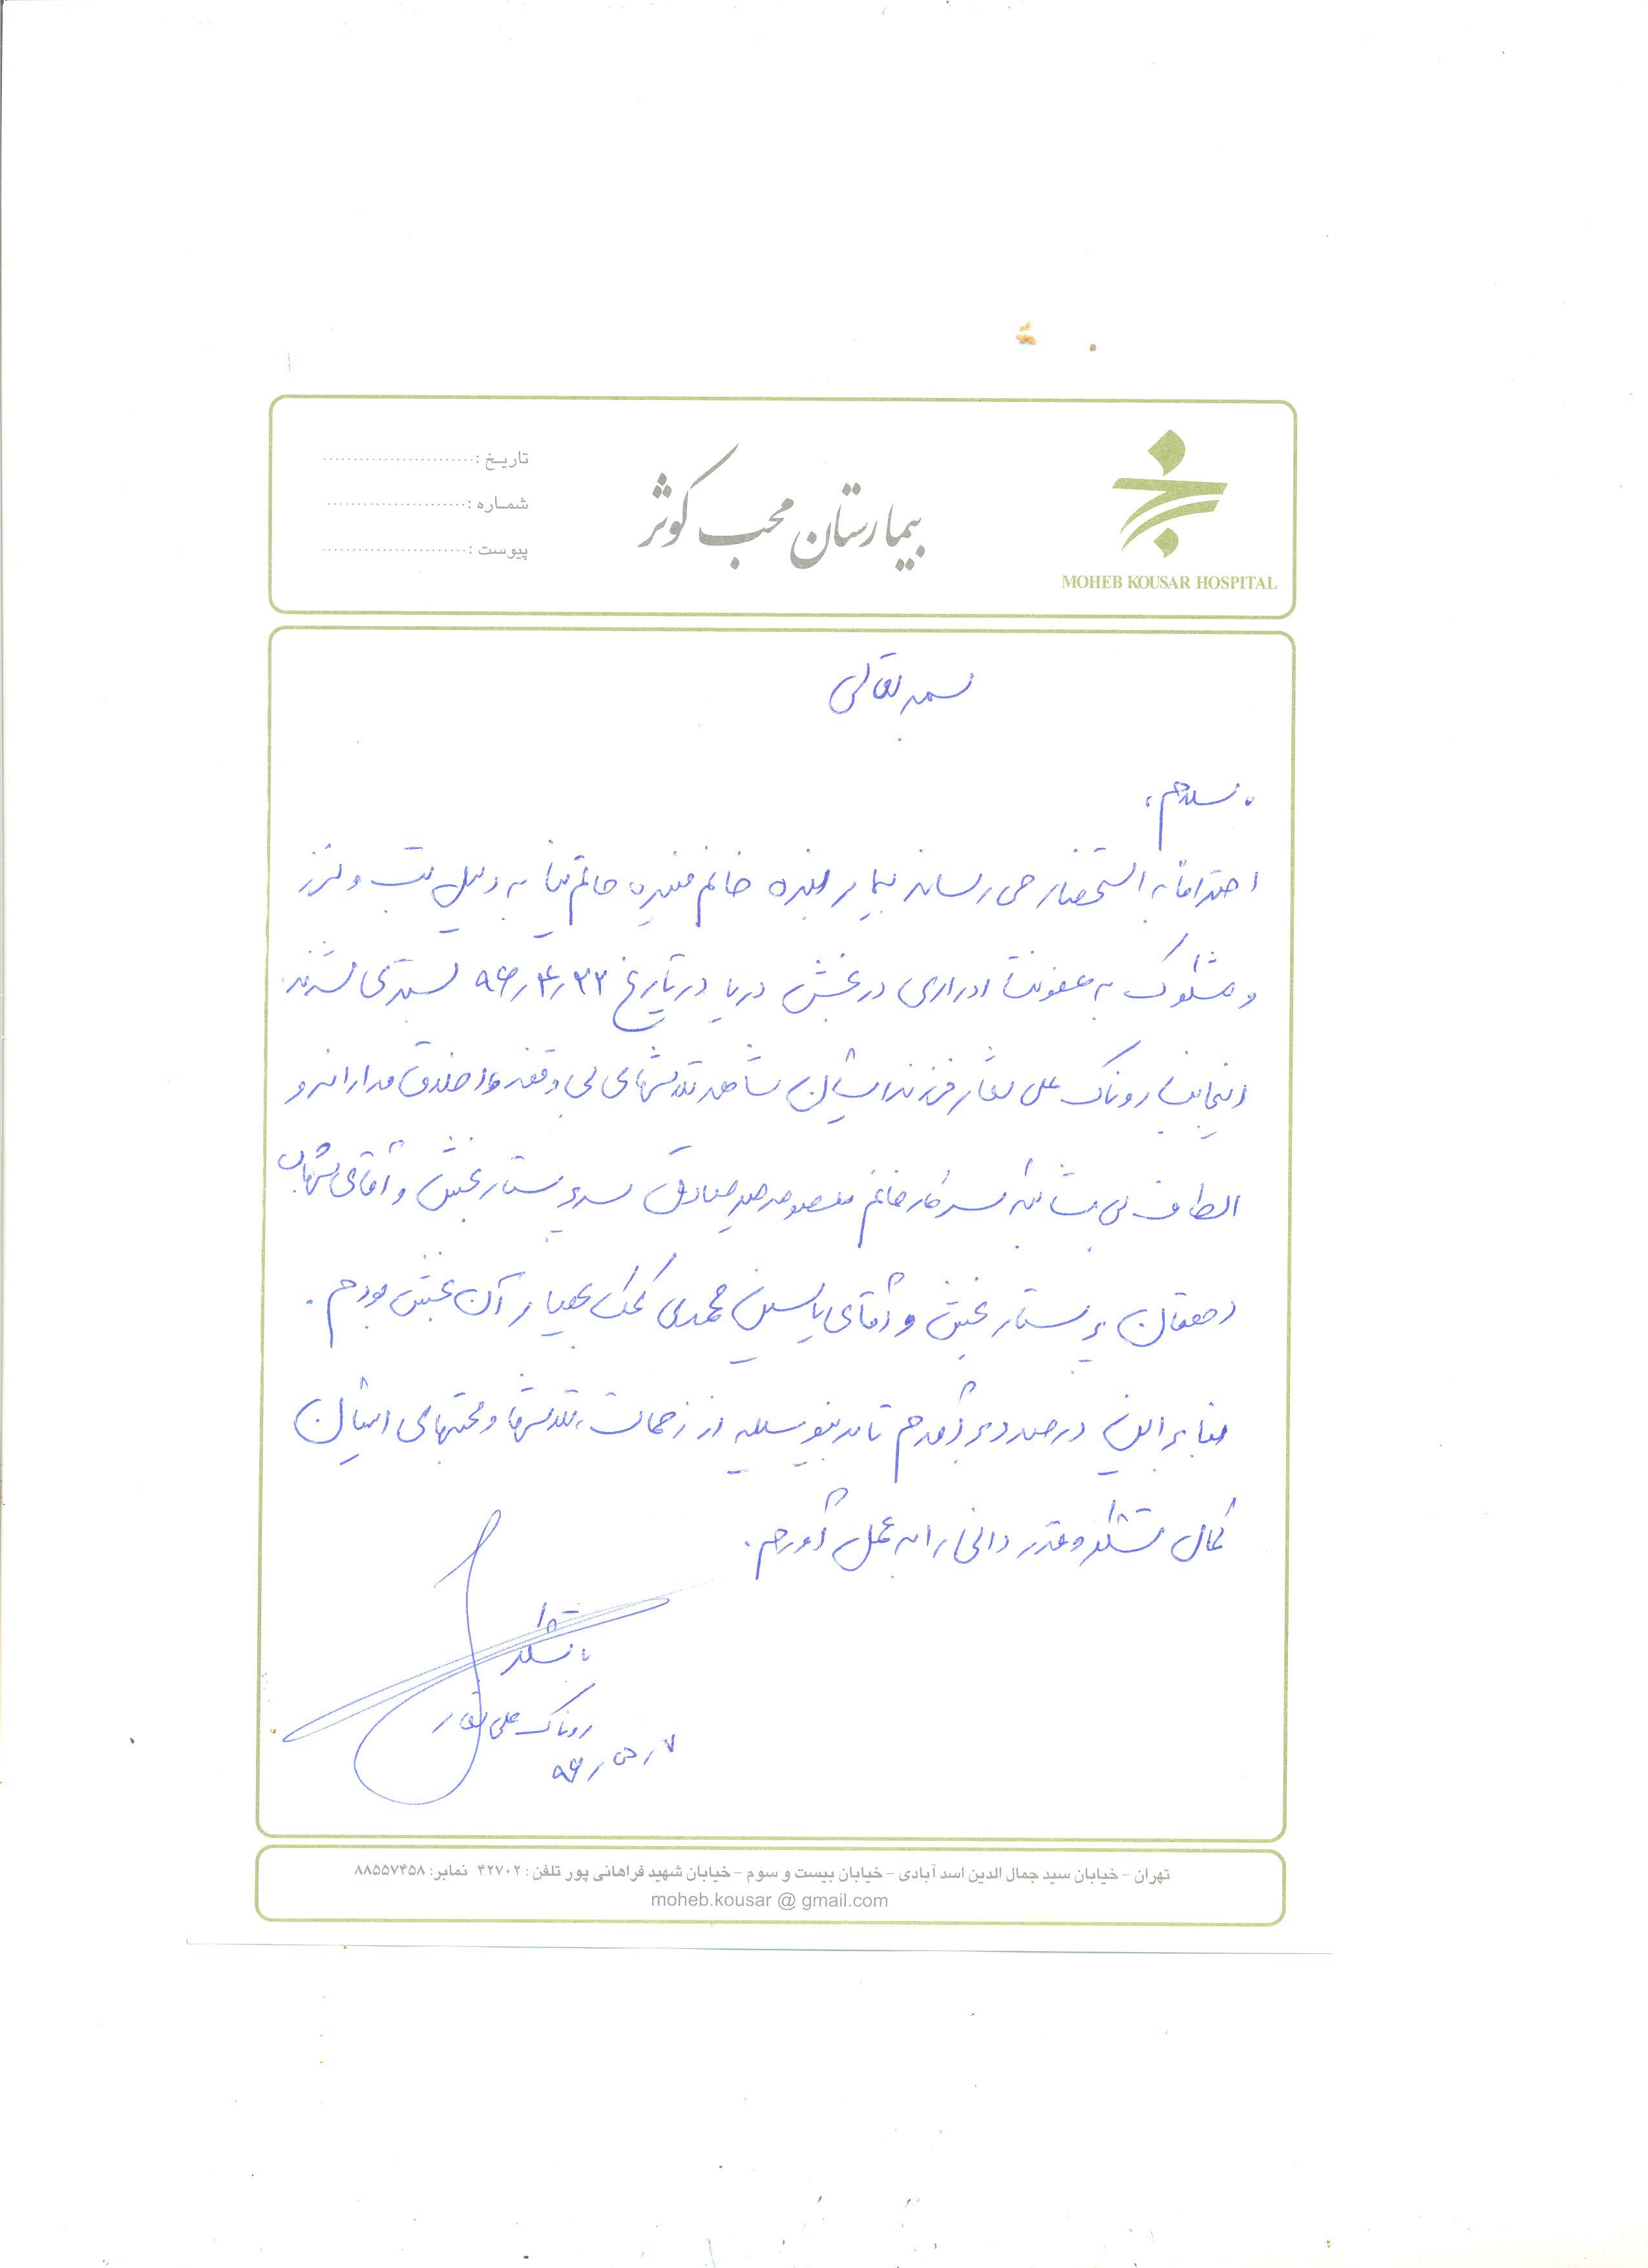 بیمارستان محب کوثر
MOHEB KOUSAR HOSPITAL
تاریخ :
شماره :
پیوست :
بسمه تعالی
سلام،
احتراماً به استحضار می رساند بیمار بنده خانم منیره حاتم نیا به دلیل تب و لرز
و مشکوک به عفونت ادراری در بخش دریا در تاریخ بستری شدند.
اینجانب روناک علی فرزند ایشان شاهد تلاشهای بی وقفه و اخلاق مدارانه و
الطاف بی شائبه سرکار خانم معصومه صادق سرپرستار بخش و آقای
دهقان پرستار بخش و آقای یاسین محمدی کمک بهیار آن بخش بودم.
بنابراین درصدد برآمدم تا بدینوسیله از زحمات، تلاشها و محبتهای ایشان
کمال تشکر و قدردانی را به عمل آورم.
با تشکر
روناک علی
۹۶٫۵٫۷
تهران - خیابان سید جمال الدین اسد آبادی - خیابان بیست و سوم - خیابان شهید فراهانی پور تلفن : ۴۲۷۰۲ نمابر: ۸۸۵۵۷۴۵۸
moheb.kousar @ gmail.com